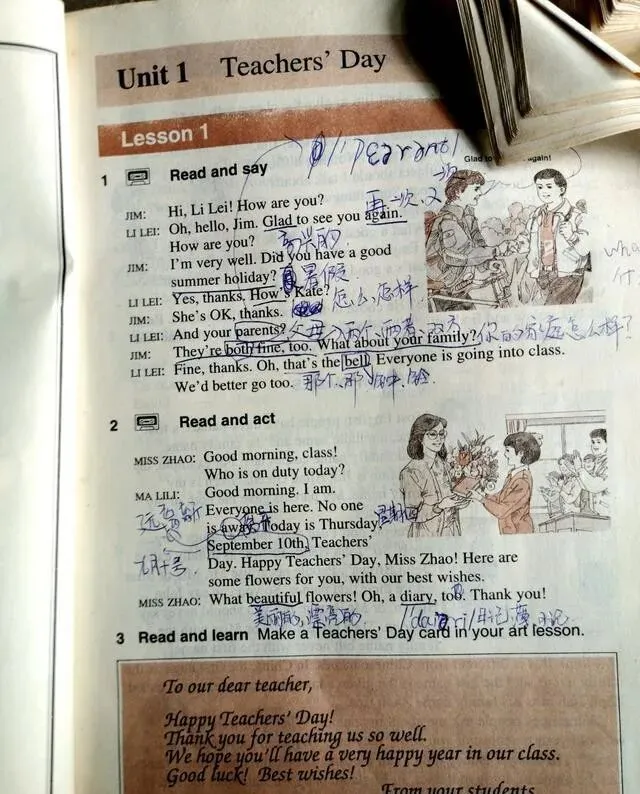 Unit 1 Teachers' Day
Lesson 1
1 Read and say
again!
再一次.又一次
JIM: Hi, Li Lei! How are you?
LI LEI: Oh, hello, Jim. Glad to see you again.
How are you? 高兴的.
JIM: I'm very well. Did you have a good
summer holiday? 暑假
LI LEI: Yes, thanks. How's Kate? 怎么,怎样
JIM: She's OK, thanks.
LI LEI: And your parents? 父母 两个,两者,双方 你的家庭怎么样?
JIM: They're both fine, too. What about your family?
LI LEI: Fine, thanks. Oh, that's the bell. Everyone is going into class.
We'd better go too. 那个,那
2 Read and act
MISS ZHAO: Good morning, class!
Who is on duty today?
MA LILI: Good morning. I am.
Everyone is here. No one
is away. Today is Thursday, 星期四
September 10th, Teachers'
九月十号
Day. Happy Teachers' Day, Miss Zhao! Here are
some flowers for you, with our best wishes.
MISS ZHAO: What beautiful flowers! Oh, a diary, too. Thank you!
美丽的,漂亮的 日记
3 Read and learn Make a Teachers' Day card in your art lesson.
To our dear teacher,
Happy Teachers' Day!
Thank you for teaching us so well.
We hope you'll have a very happy year in our class.
Good luck! Best wishes!
From your students